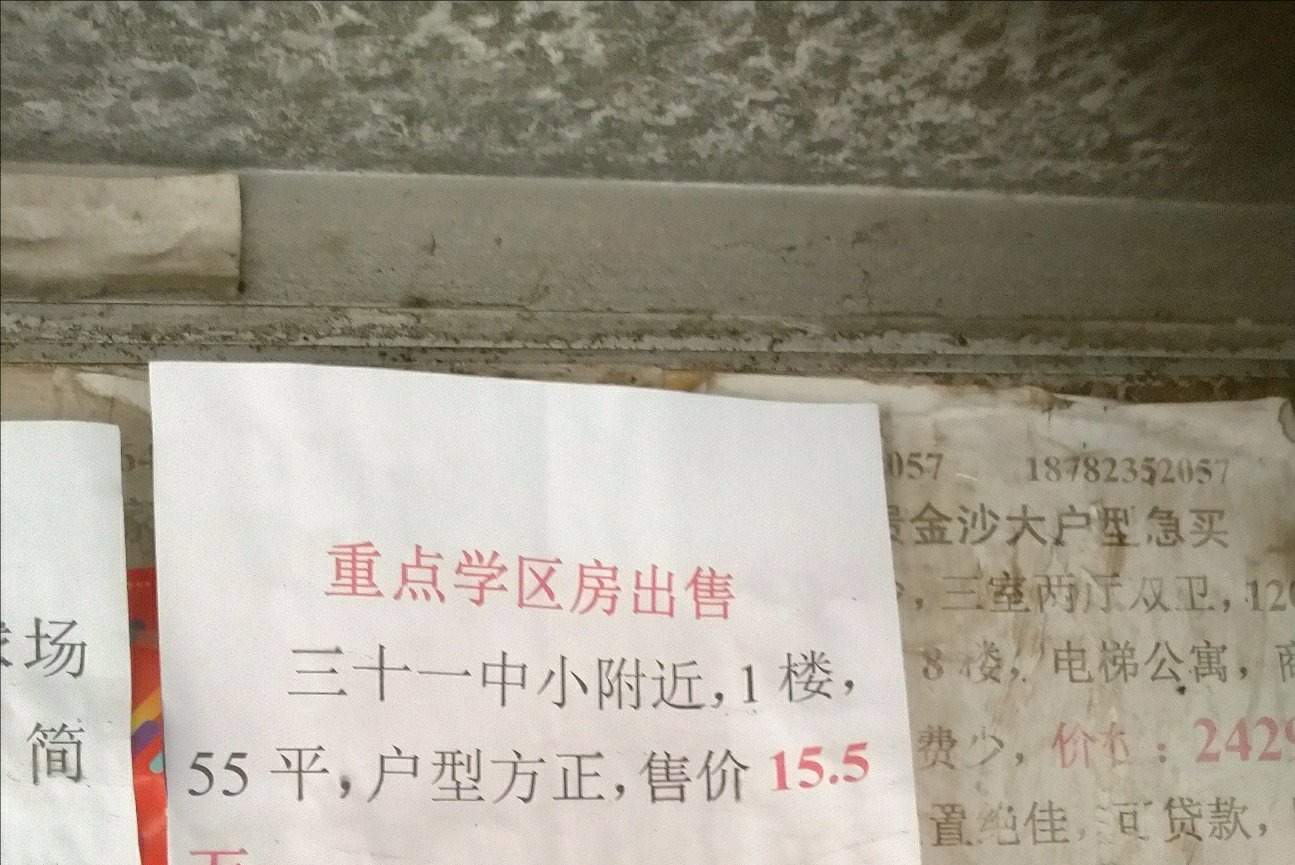 场
简
重点学区房出售
三十一中小附近，1 楼，
55 平，户型方正，售价 15.5
057 18782352057
金沙大户型急买
，三室两厅双卫，120
8 楼，电梯公寓，商
费少，价 ：2429
置绝佳，可贷款，